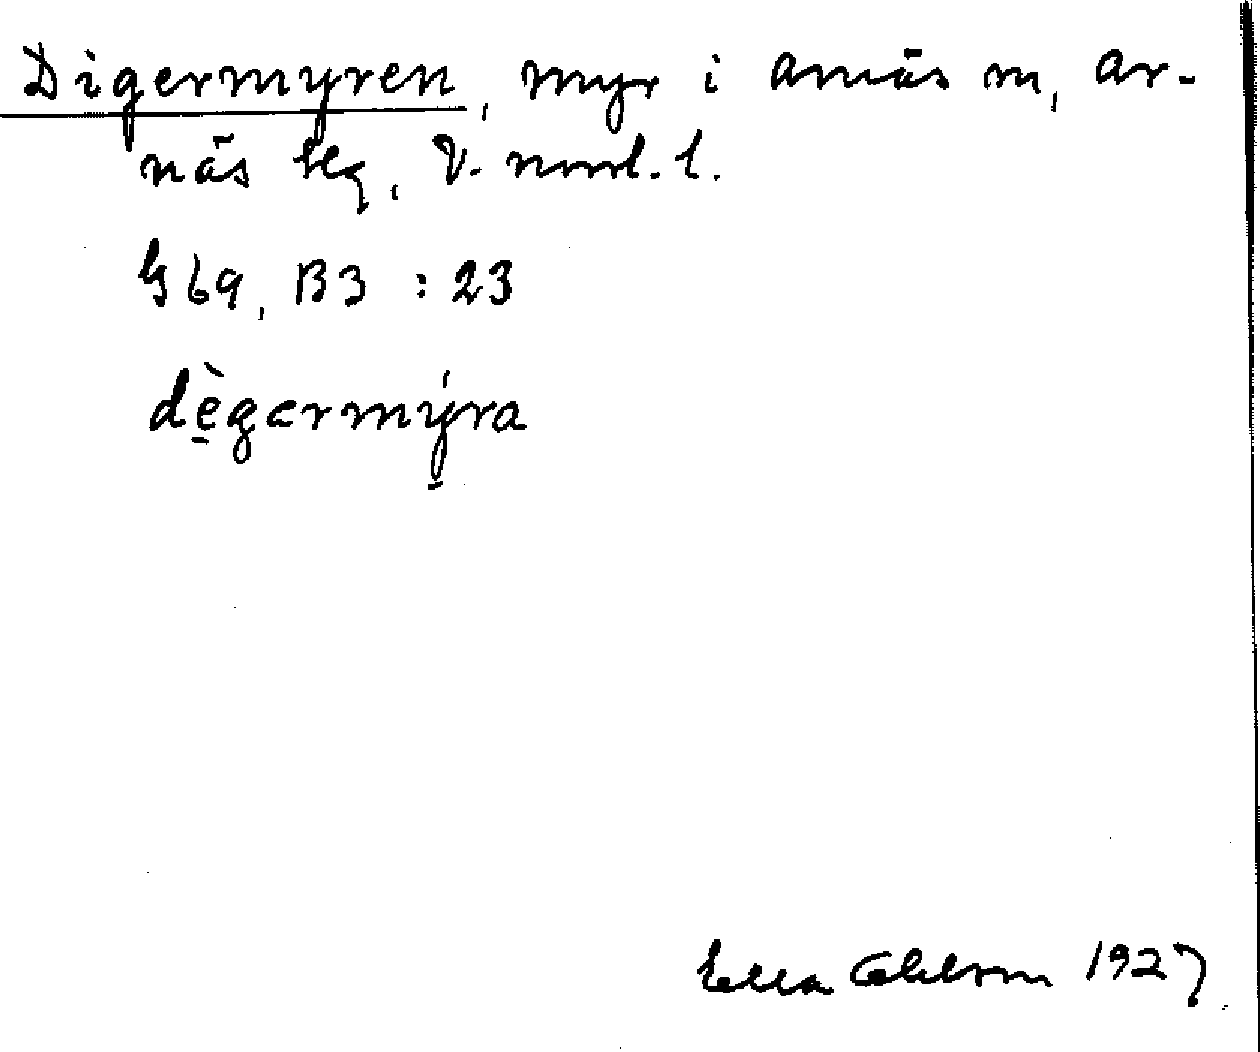 Digermyren, myr i Arnäs sn, Ar-
näs tlg, V. norrl. l.
G 69, B3 : 23
dègærmýra
Ella Ohlson 1927